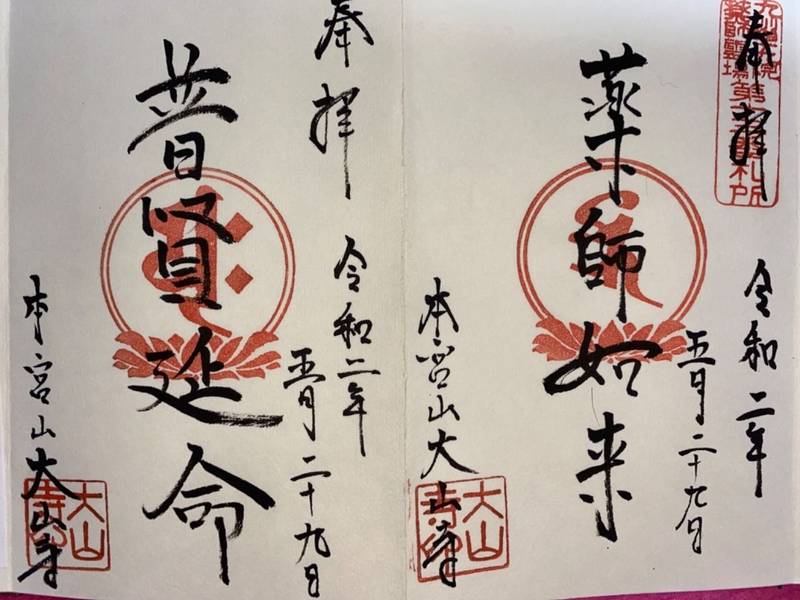 奉拝
令和二年
五月二十九日
薬師如来
本宮山大山寺
大山
寺印
奉拝
令和二年
五月二十九日
普賢延命
本宮山大山寺
大山
寺印